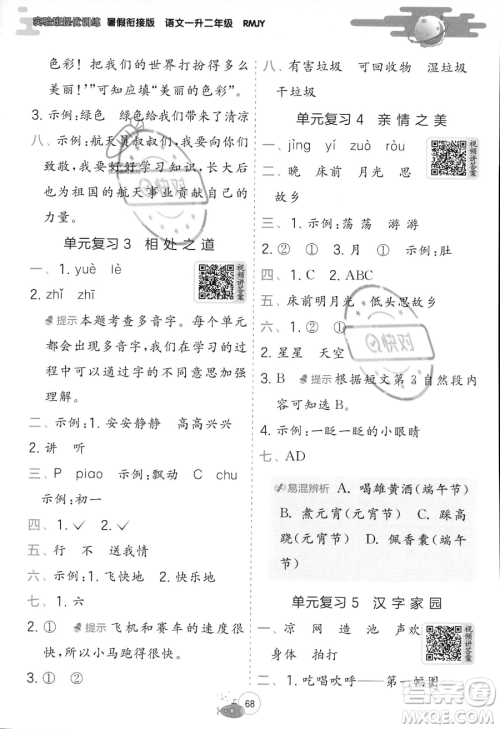 实验班提优训练 暑假衔接版 语文一升二年级 RMJY
色彩。我们把世界打扮得多么
美丽!”可知应填“美丽的色彩”。
3. 示例:绿色 绿色给我们带来了清凉
八、示例:航天员叔叔们,我要向你们
致敬,我要好好学习知识,长大后
也为祖国的航天事业贡献自己的
力量。
单元复习3 相处之道
一、1. yuè lè
2. zhǐ zhī
提示 本题考查多音字。每个单元
都会出现几个多音字,有的多音字
起初我们只学习了一个读音,其他
读音没有出现。我们在学习的过
程中可以把多音字积累起来,方便
复习。
二、示例:1. 安安静静 高高兴兴
2. 讲 听
三、P piao 示例:飘动 C chu
示例:初一
四、1. ✓ 2. ✓
五、行 不 情
六、示例:1. 飞快地 2. 愉快地
七、1. 六
2. ● 提示 飞机和赛车的速度很
快,所以小马跑得也很快。
3. ② ①
八、示例:可收物 有害垃圾 湿垃圾
干垃圾
单元复习4 亲情之美
一、jìng yí zuò ròu
二、晚 床前 月光 思
故乡
三、1. 示例:荡荡 游游
2. ② ① ① 3. 示例:肚
四、1. A 2. ABC
五、床前明月光 低头思故乡
六、1. ②
2. 星星 天空
3. B 提示 根据短文第3自然段内
容可知选B。
4. 示例:一眨一眨的小眼睛
七、AD
易混辨析 A. 喝雄黄酒(端午节)
B. 煮元宵(元宵节) C. 踩高
跷(元宵节) D. 佩香囊(端午节)
单元复习5 汉字家园
一、凉 网 造 池 声 欢
身体 拍打
二、1. 吃唱吹呼——第一幅图
视频讲答案
视频讲答案
视频讲答案
快对
68
答案圈
MXQE.COM